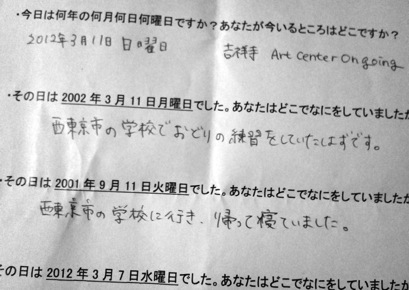 ・今日は何年の何月何日何曜日ですか？あなたが今いるところはどこですか？
2012年3月11日 日曜日 吉祥寺 Art Center Ongoing
・その日は 2002 年 3 月 11 日月曜日でした。あなたはどこでなにをしていましたか
西東京市の学校でおどりの練習をしていたはずです。
・その日は 2001 年 9 月 11 日火曜日でした。あなたはどこでなにをしていましたか
西東京市の学校に行き、帰って寝ていました。
その日は 2012 年 3 月 7 日水曜日でした。あなたはどこでなにをしていましたか